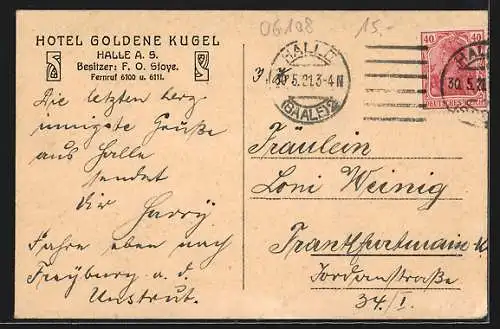 06108 15.-
HOTEL GOLDENE KUGEL
HALLE A. S.
Besitzer: F. O. Stoye.
Fernruf 6100 u. 6111.
HALLE
30.5.21.3-4N
(SAALE)2
40 40
DEUTSCHES REICH
HALLE
30.5.21
Die letzten herz
innigste Grüße
aus Halle
sendet
Dir Harry
Fahre eben nach
Freyburg a. d.
Unstrut.
Fräulein
Loni Weinig
Frankfurtmain
Jordanstraße
34./I.